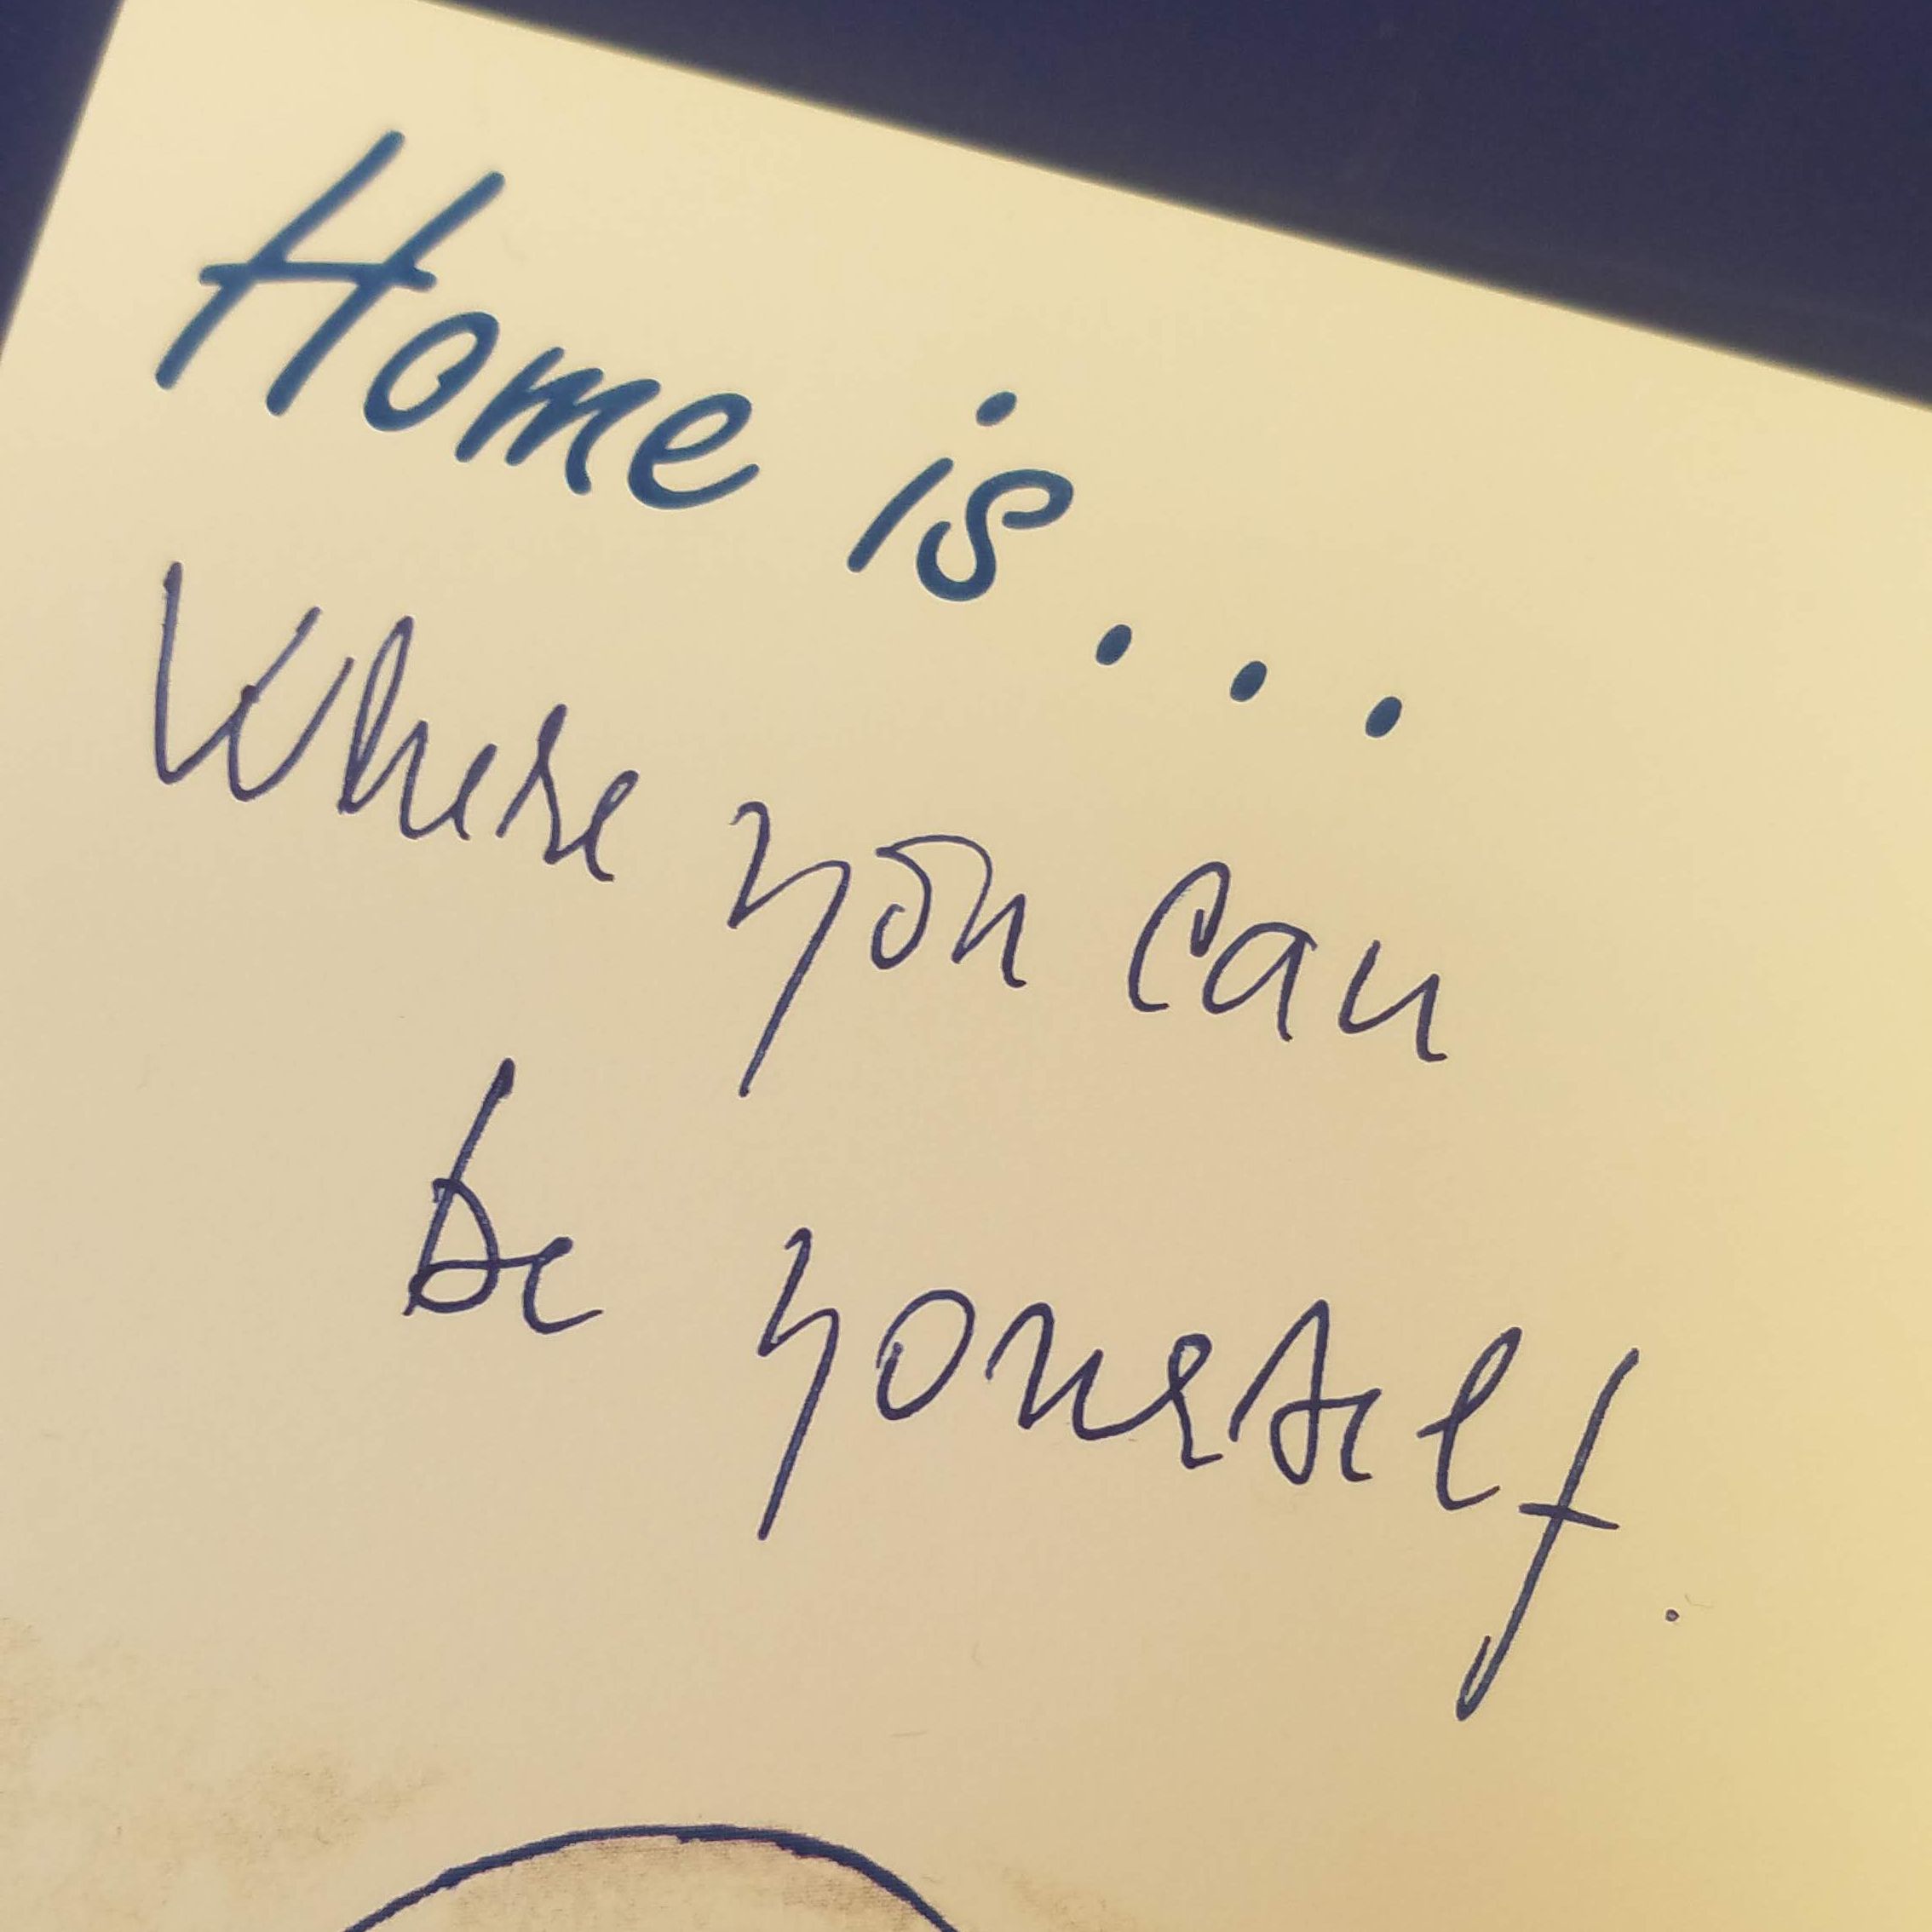 Home is...
Where you can
be yourself.